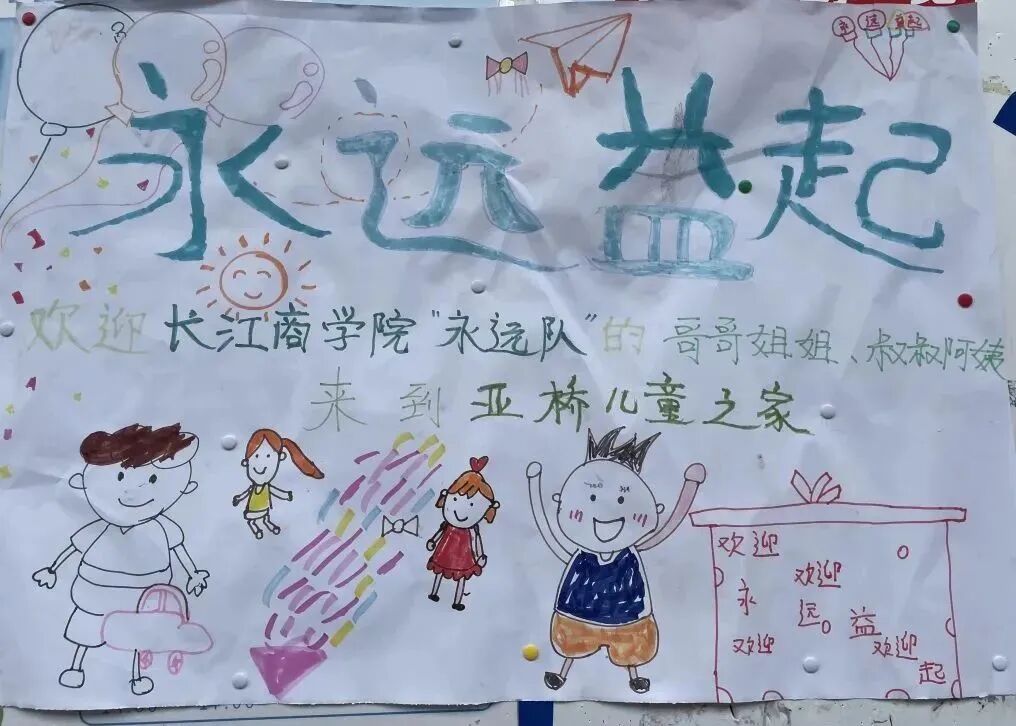 永远益起
永远益起
欢迎长江商学院"永远队"的哥哥姐姐、叔叔阿姨
来到亚桥儿童之家
欢迎
欢迎
永
远
益
欢迎
欢迎
起